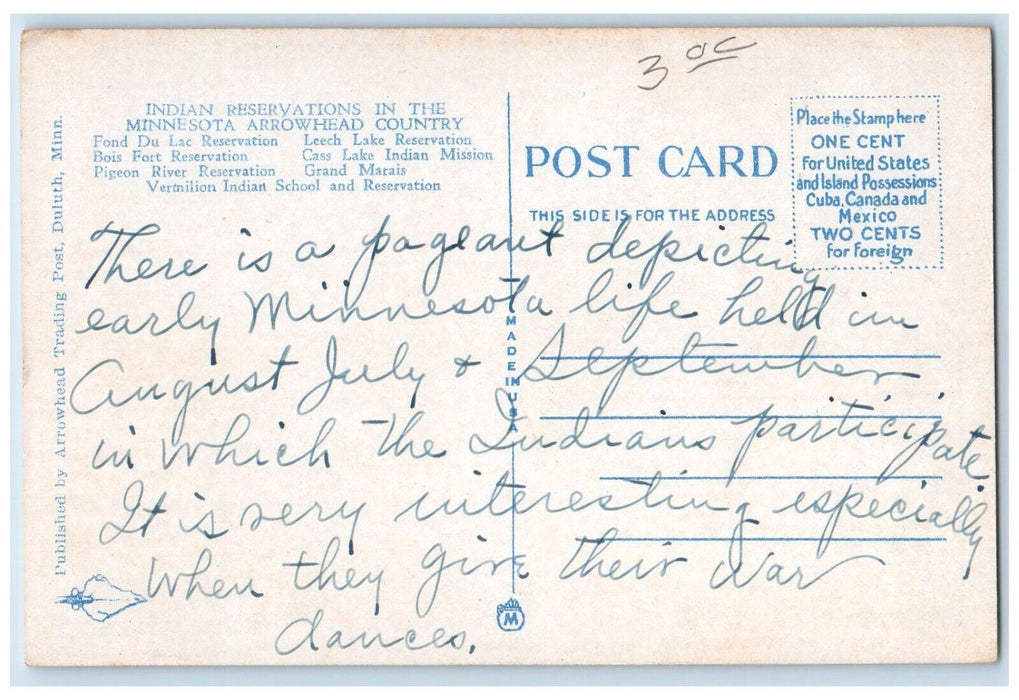 3 00
INDIAN RESERVATIONS IN THE
MINNESOTA ARROWHEAD COUNTRY
Fond Du Lac Reservation Leech Lake Reservation
Bois Fort Reservation Cass Lake Indian Mission
Pigeon River Reservation Grand Marais
Vermilion Indian School and Reservation
POST CARD
THIS SIDE IS FOR THE ADDRESS
Place the Stamp here
ONE CENT
for United States
and Island Possessions
Cuba, Canada and
Mexico
TWO CENTS
for Foreign
There is a pageant depicting
early Minnesota life held in
August July & September
in which the Indians participate.
It is very interesting especially
when they give their war
dances.
MADE IN USA
Published by Arrowhead Trading Post, Duluth, Minn.
M